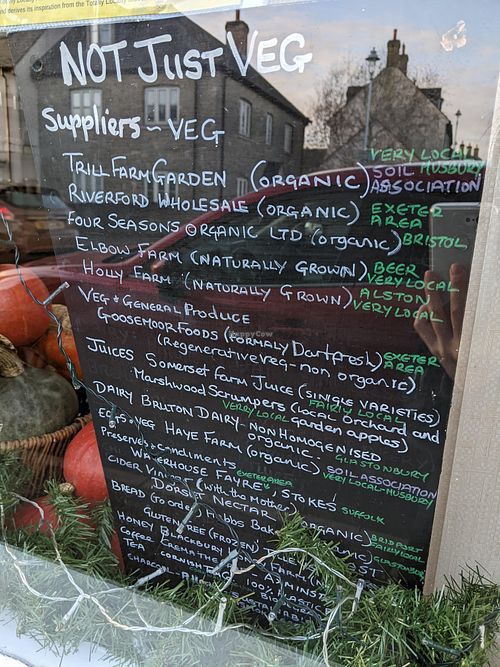 and derives its inspiration from the Totally Locally
NOT JUST VEG
Suppliers ~ VEG
VERY LOCAL
TRILL FARM GARDEN (ORGANIC) SOIL MUSBURY
ASSOCIATION
RIVERFORD WHOLESALE (ORGANIC) EXETER
AREA
FOUR SEASONS ORGANIC LTD (organic) BRISTOL
ELBOW FARM (NATURALLY GROWN) BEER
VERY LOCAL
HOLLY FARM (NATURALLY GROWN) ALSTON
VERY LOCAL
VEG & GENERAL PRODUCE
GOOSEMOOR FOODS (FORMALY Dartfresh) EXETER
AREA
(Regenerative veg - non organic)
JUICES SOMERSET FARM JUICE (SINGLE VARIETIES)
FAIRLY LOCAL
MARSHWOOD SCRUMPERS (LOCAL ORCHARD and
VERRY LOCAL garden apples)
DAIRY BRUTON DAIRY - NON HOMOGENISED
organic - GLASTONBURY
EGGS & VEG HAYE FARM (organic) SOIL ASSOCIATION
VERY LOCAL - MUSBURY
Preserves & condiments
WATERHOUSE FAYRE, STOKES
EXETER AREA
SUFFOLK
CIDER (with the Mother)
DORSET NECTAR (ORGANIC) BRIDPORT
FAIRLY LOCAL
BREAD (To order)
GLUTEN FREE (FROZEN)
GLASTONBURY
HONEY BLACKBURY FARM
COFFEE CREMA
TEA CORNISH
100%